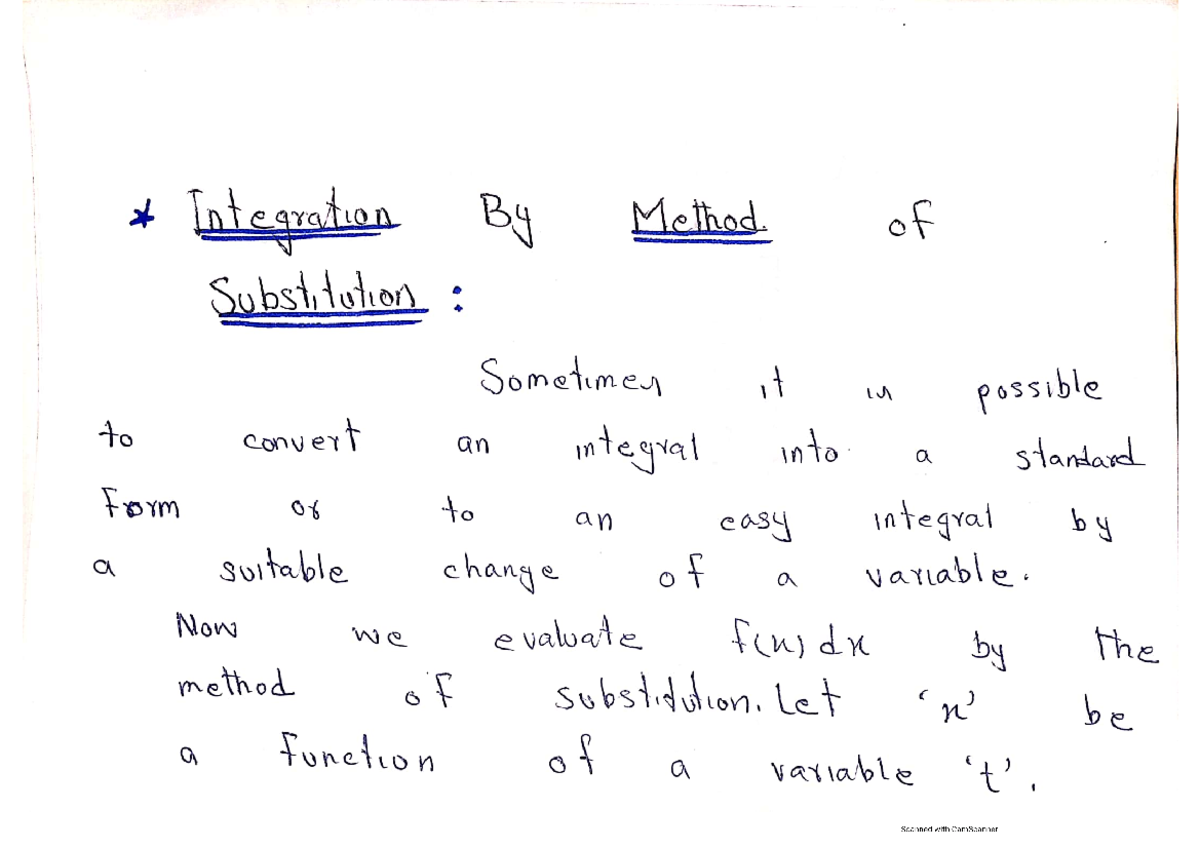 * Integration By Method of
Substitution :
Sometimes it is possible
to convert an integral into a standard
form or to an easy integral by
a suitable change of a variable.
Now we evaluate f(x) dx by the
method of substitution. Let 'x' be
a function of a variable 't'.
Scanned with CamScanner